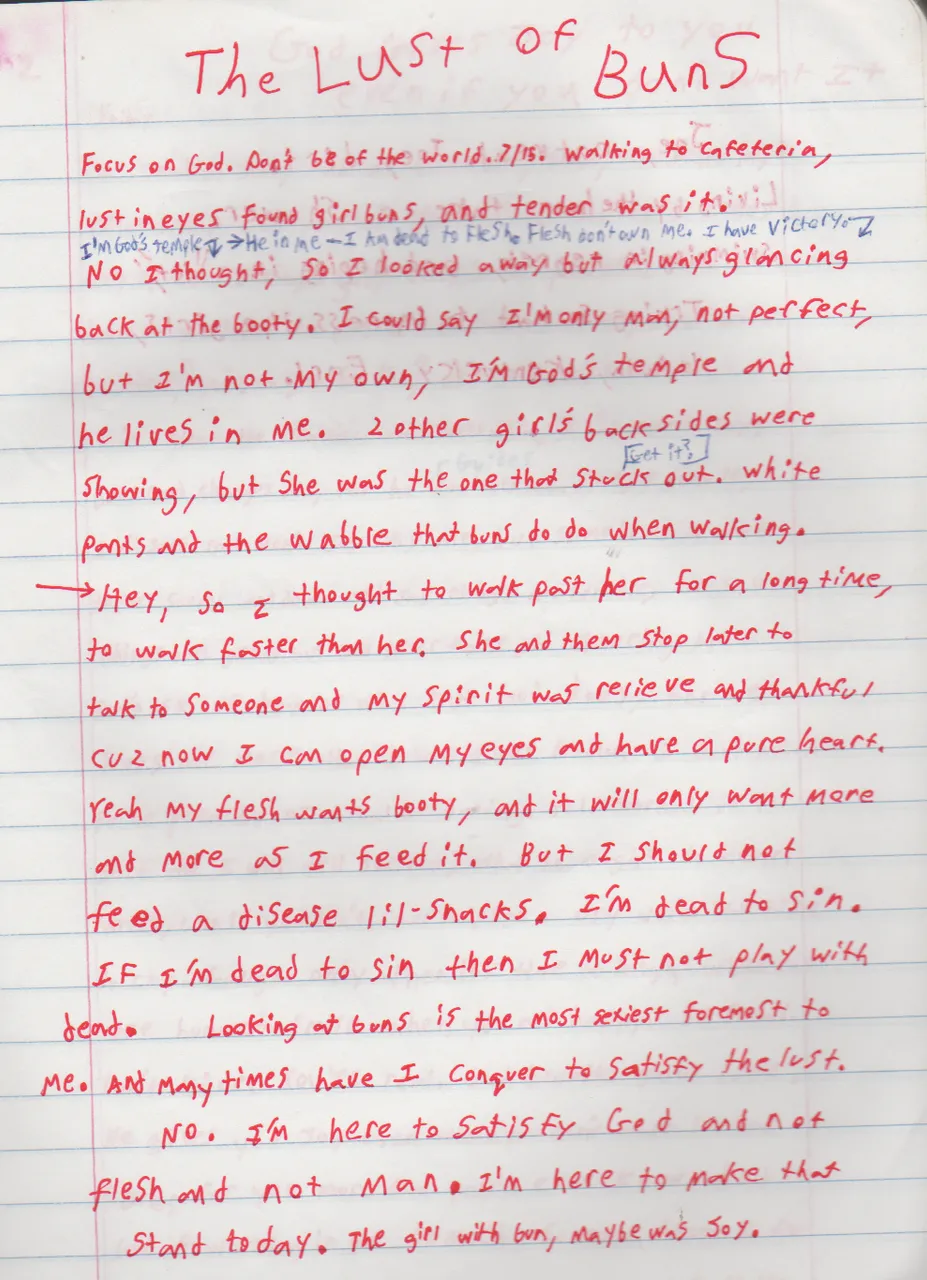 The Lust of Buns
Focus on God. Don't be of the world. 7/15. Walking to cafeteria,
lust in eyes found girl buns, and tender was it.
I'm God's temple → He in me - I Am dead to Flesh. Flesh don't own me. I have Victory.
No I thought, So I looked away but always glancing
back at the booty. I could say I'm only man, not perfect,
but I'm not my own, I'm God's temple and
he lives in me. 2 other girl's back sides were
[Get it?]
showing, but She was the one that Stuck out. White
pants and the wabble that buns do do when walking.
→ Hey, so I thought to walk past her for a long time,
to walk faster than her. She and them stop later to
talk to someone and my spirit was relieve and thankful
cuz now I can open my eyes and have a pure heart.
Yeah my flesh wants booty, and it will only want more
and more as I feed it. But I should not
feed a disease lil-snacks. I'm dead to sin.
IF I'm dead to sin then I must not play with
dead. Looking at buns is the most sexiest foremost to
me. And many times have I conquer to satisfy the lust.
No. I'm here to satisfy God and not
flesh and not man. I'm here to make that
stand today. The girl with bun, maybe was Joy.